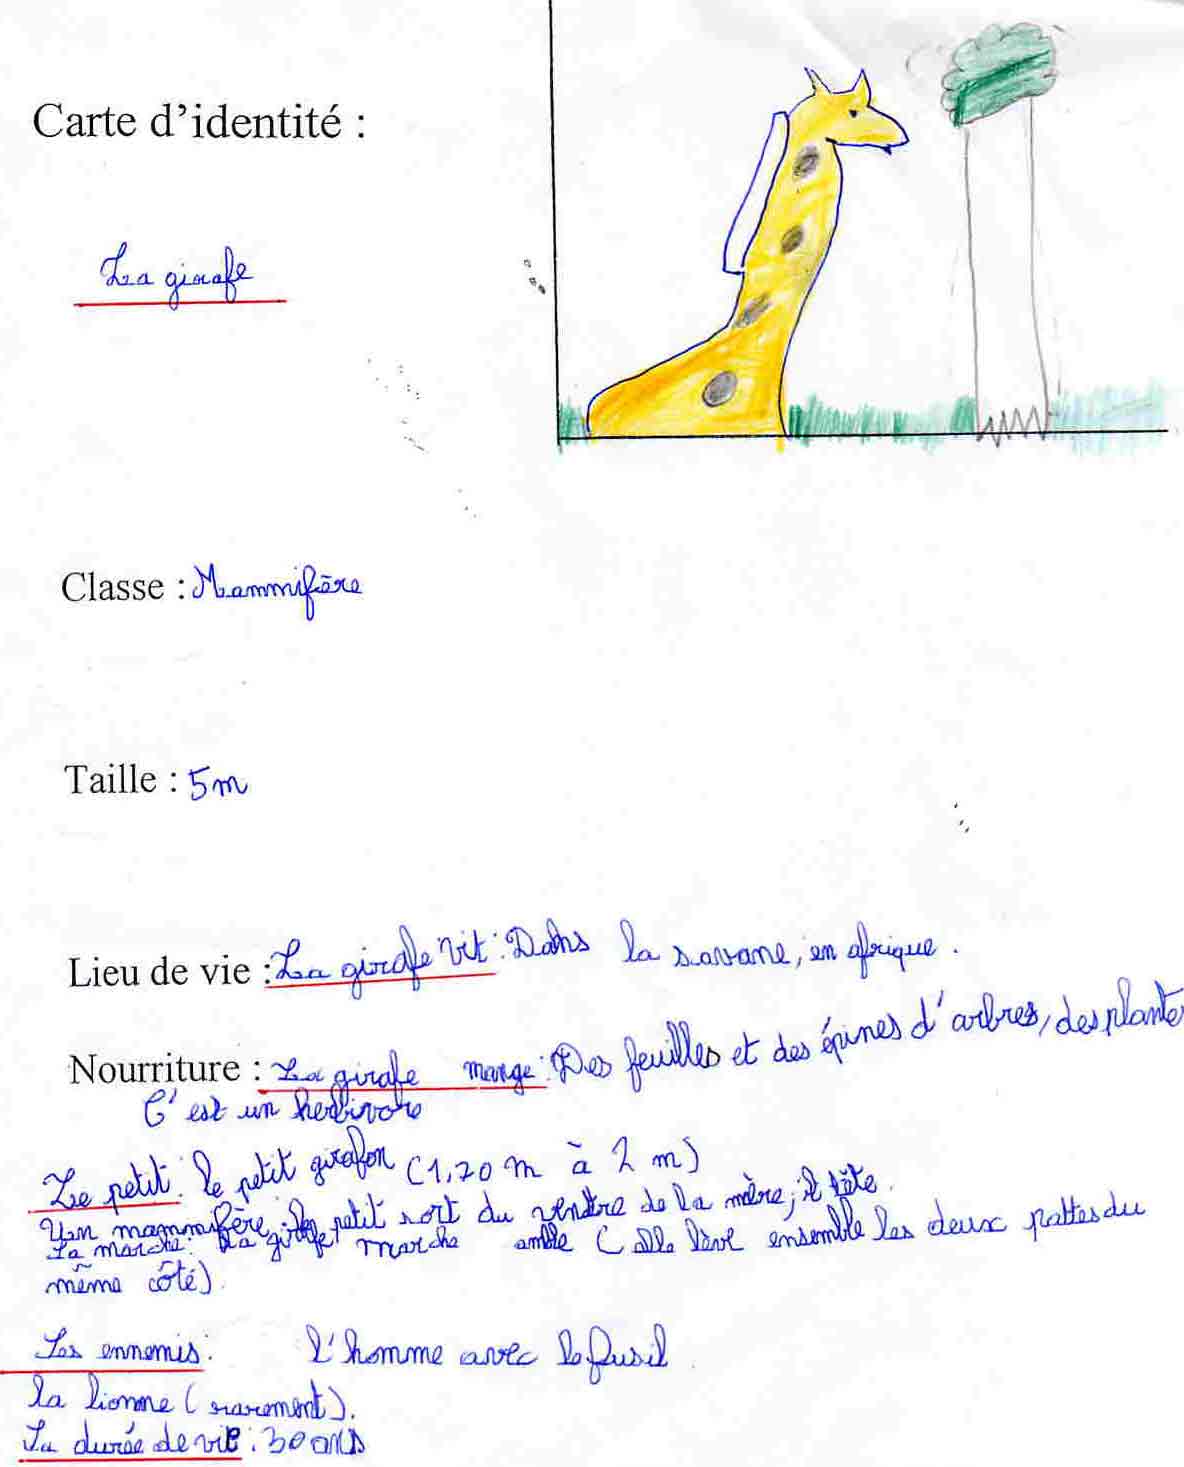 Carte d'identité :
La girafe
Classe : Mammifère
Taille : 5m
Lieu de vie : La girafe vit : Dans la savane, en afrique.
Nourriture : La girafe mange : Des feuilles et des épines d'arbres, des plantes
C'est un herbivore
Le petit : le petit girafon (1,70 m à 2 m)
Un mammifère : le petit sort du ventre de la mère, il tête.
La marche : La girafe marche amble (elle lève ensemble les deux pattes du
même côté).
Les ennemis : l'homme avec le fusil.
la lionne (rarement).
La durée de vie : 30 ans